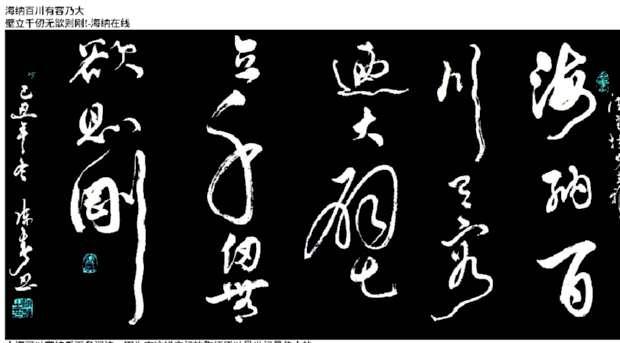 海纳百川有容乃大
壁立千仞无欲则刚!-海纳在线
海納百
川有容
迺大壁
立千仞無
欲則剛
己丑年冬